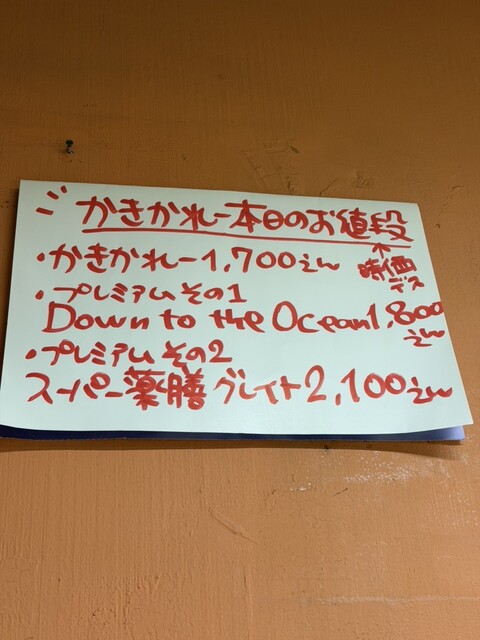 かきかれー本日のお値段
↑時価デス
・かきかれー1,700えん
・プレミアムその1
Down to the Ocean1,800えん
・プレミアムその2
スーパー薬膳グレイト2,100えん